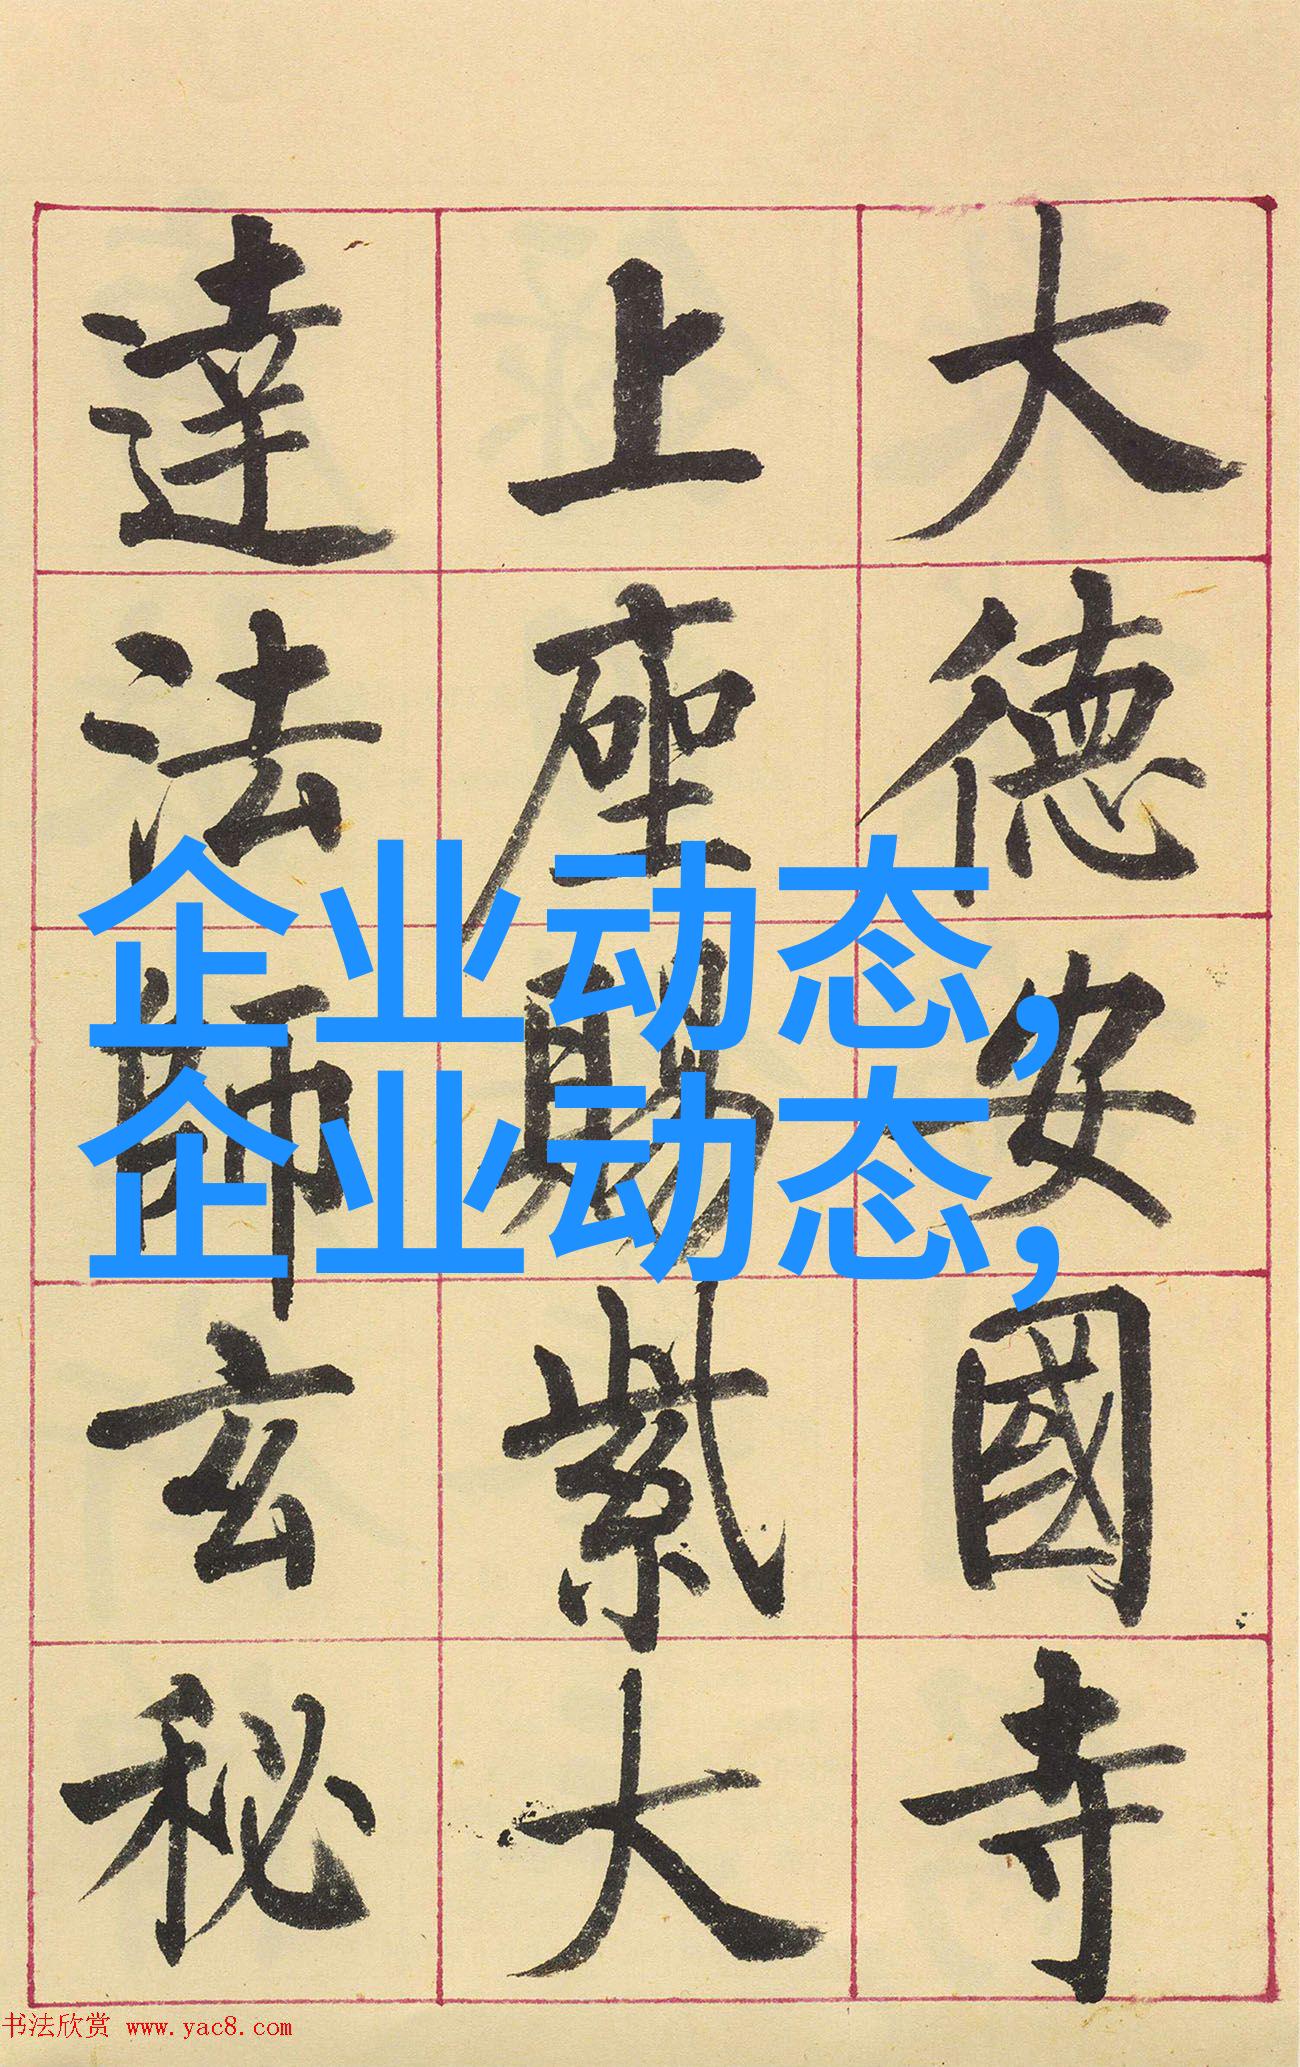 大德安國寺
上座賜紫大
達法師玄秘
企业动态,
企业动态,
书法欣赏 www.yac8.com